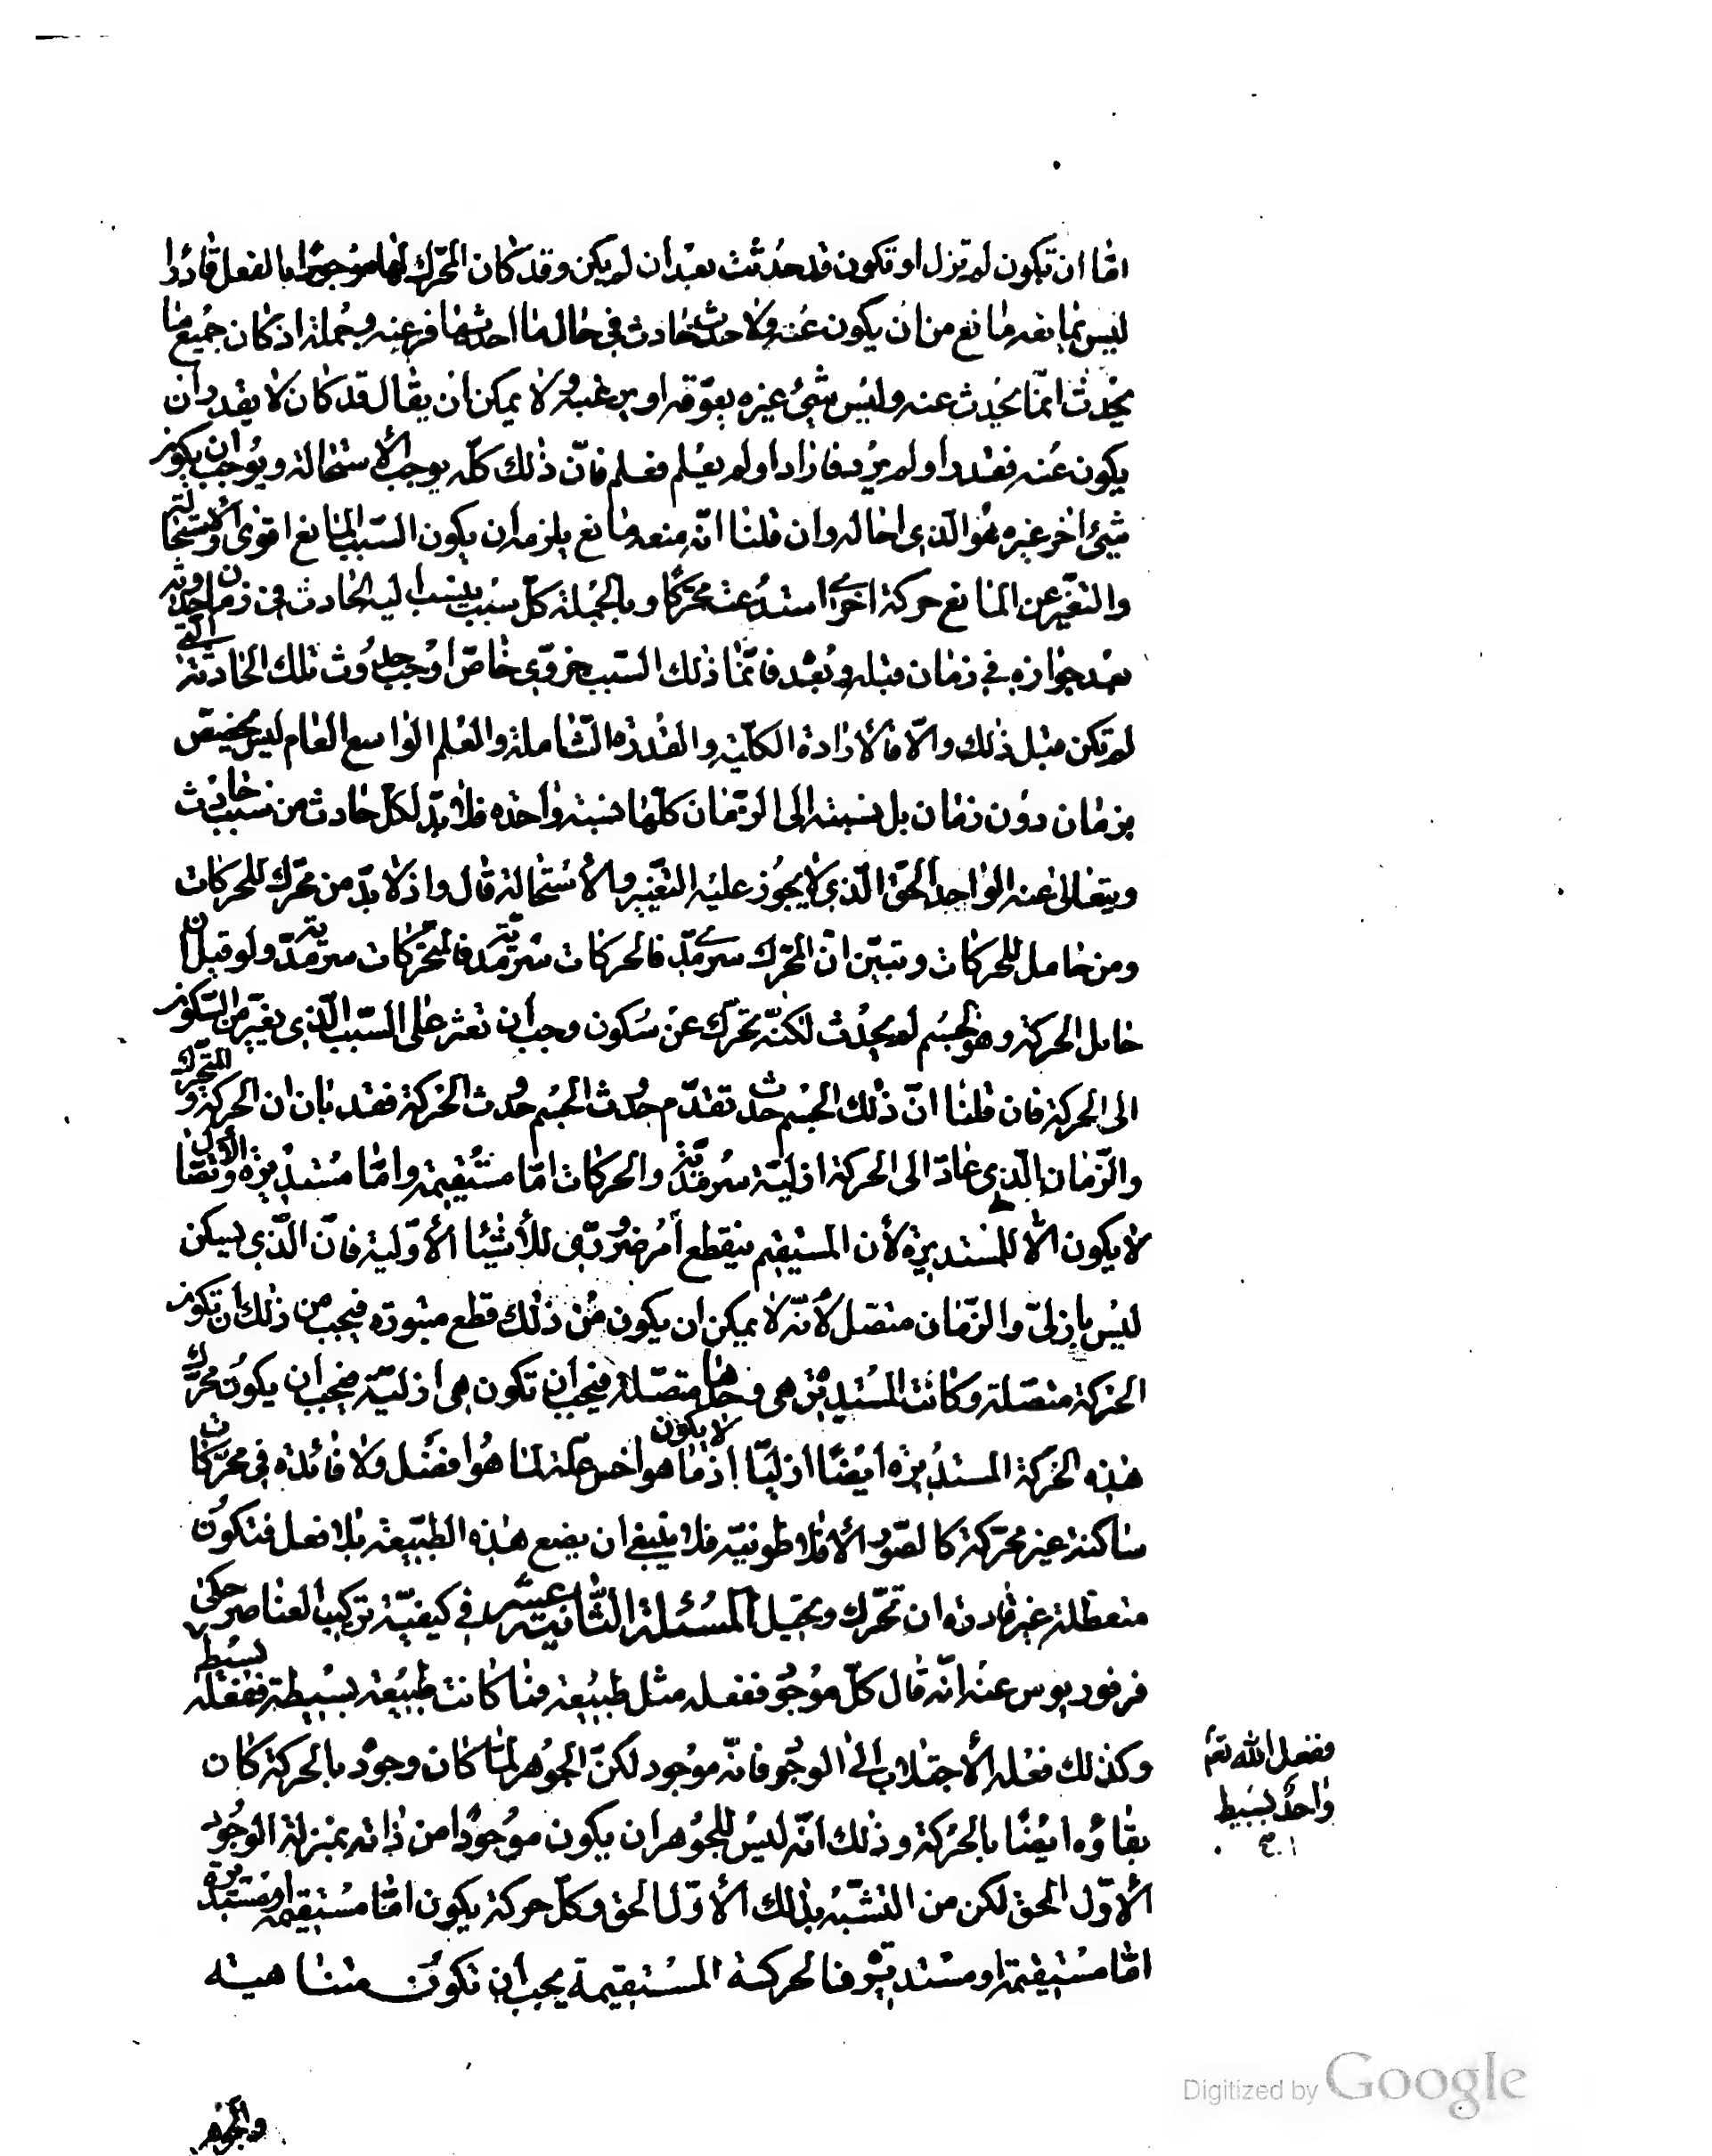 امّا ان تكون لم تزل او تكون قد حدثت بعد ان لم يكن وقد كان المحرّك لها موجودا بالفعل قادرا
ليس يمانعه مانع من ان يكون عنه ولا حدث حادث في حال ما احدثها فرغبه وحمله اذ كان جميع ما
يحدث انّما يحدث عنه وليس شيئ غيره يعوّقه او يرغبه ولا يمكن ان يقال قد كان لا يقدر ان
يكون عنه فقدر او لم يرد فاراد او لم يعلم فعلم فانّ ذلك كلّه يوجب الاستحالة ويوجب ان يكون
شيئ اخر غيره هو الّذي احاله وان قلنا انّه منعه مانع يلزم ان يكون السّبب المانع اقوى والاستحالة
والتغيّر عن المانع حركة اخرى استدعت محرّكا وبالجملة كلّ سبب ينسب اليه الحادث في زمان حدوثه
بعد جوازه في زمان قبله وبعده فانّما ذلك السّبب جزوي خاصّ اوجب حدوث تلك الحادثة الّتي
لم تكن قبل ذلك والّا فالارادة الكليّة والقدرة الشّاملة والعلم الواسع العام ليس يخصّص
بزمان دون زمان بل نسبته الى الزّمان كلّها نسبة واحدة فلا بدّ لكلّ حادث من سبب حادث
ويتعالى عنه الواحد الحقّ الّذي لا يجوز عليه التغيّر والاستحالة قال واذ لا بدّ من محرّك للحركات
ومن حامل للحركات وتبيّن انّ المحرّك سرمدي فالحركات سرمديّة فالمتحرّكات سرمديّة ولو قيل ان
حامل الحركة وهو الجسم لم يحدث لكنّه تحرّك عن سكون وجب ان نعثر على السّبب الّذي يغيّر من السّكون
الى الحركة فان قلنا انّ ذلك الجسم حدث تقدّم حدث الجسم حدث الحركة فقد بان ان الحركة والمتحرّك
والزّمان الّذي عادّ الى الحركة ازليّة سرمديّة والحركات امّا مستقيمة وامّا مستديرة والاتّصال
لا يكون الّا للمستديرة لأن المستقيم ينقطع امر ضروري للأشيا الأوّلية فانّ الّذي يسكن
ليس بازليّ والزّمان متّصل لأنّه لا يمكن ان يكون من ذلك قطع مبتورة فيجب من ذلك ان تكون
الحركة متّصلة وكانت المستديرة هي وحدها متصّلة فيجب ان تكون هي ازليّة فيجب ان يكون محرّك
هذه الحركة المستديرة ايضا ازليّا اذ لا يكون ما هو اخس علّة لما هو افضل ولا فائدة في محرّكات
ساكنة غير محرّكة كالصّور الأفلاطونيّة فلا ينبغي ان يضع هذه الطّبيعة بلا فعل فتكون
متعطّلة غير قادرة ان تحرّك وتحيل المسئلة الثّانية عشر في كيفيّة تركيب العناصر حكى
فرفوريوس عنه انّه قال كلّ موجود ففعله مثل طبيعته فما كانت طبيعته بسيطة ففعله بسيط
وكذلك فعله الأجتلاب الى الوجود فانّه موجود لكنّ الجوهر لمّا كان وجوده بالحركة كان
بقاؤه ايضا بالحركة وذلك انّه ليس للجوهر ان يكون موجودا من ذاته بمنزلة الوجود
الأوّل الحق لكن من التّشبّه بذلك الأوّل الحق وكلّ حركة يكون امّا مستقيمة او مستديرة
امّا مستقيمة او مستديرة فالحركة المستقيمة يجب ان تكون متناهية
ففعل الله تع
واحد بسيط
والجوهر
Digitized by Google